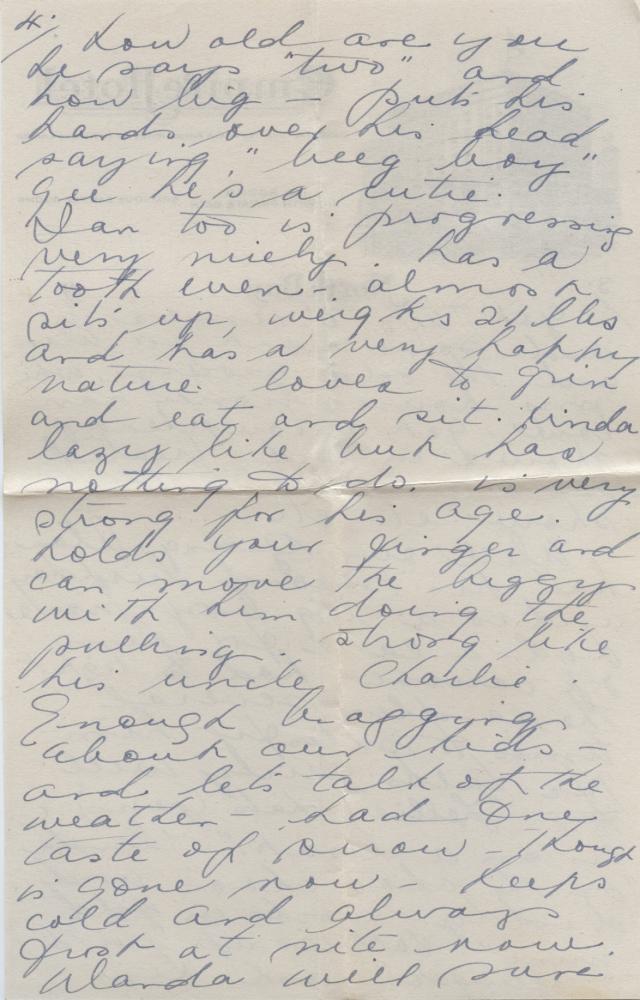 4/
How old are you
he says "two" and
how big - puts his
hands over his head
saying, "beeg boy"
gee he's a cutie.
Ian too is progressing
very nicely. has a
tooth even. almost
sits up, weighs 21 lbs
and has a very happy
nature. loves to grin
and eat and sit. kinda
lazy like but has
nothing to do. is very
strong for his age.
holds your finger and
can move the buggy
with him doing the
pulling. strong like
his uncle Charlie.
Enough bragging
about our kids -
and let's talk of the
weather - had one
taste of snow - though
is gone now - keeps
cold and always
frost at nite now.
Wanda will sure